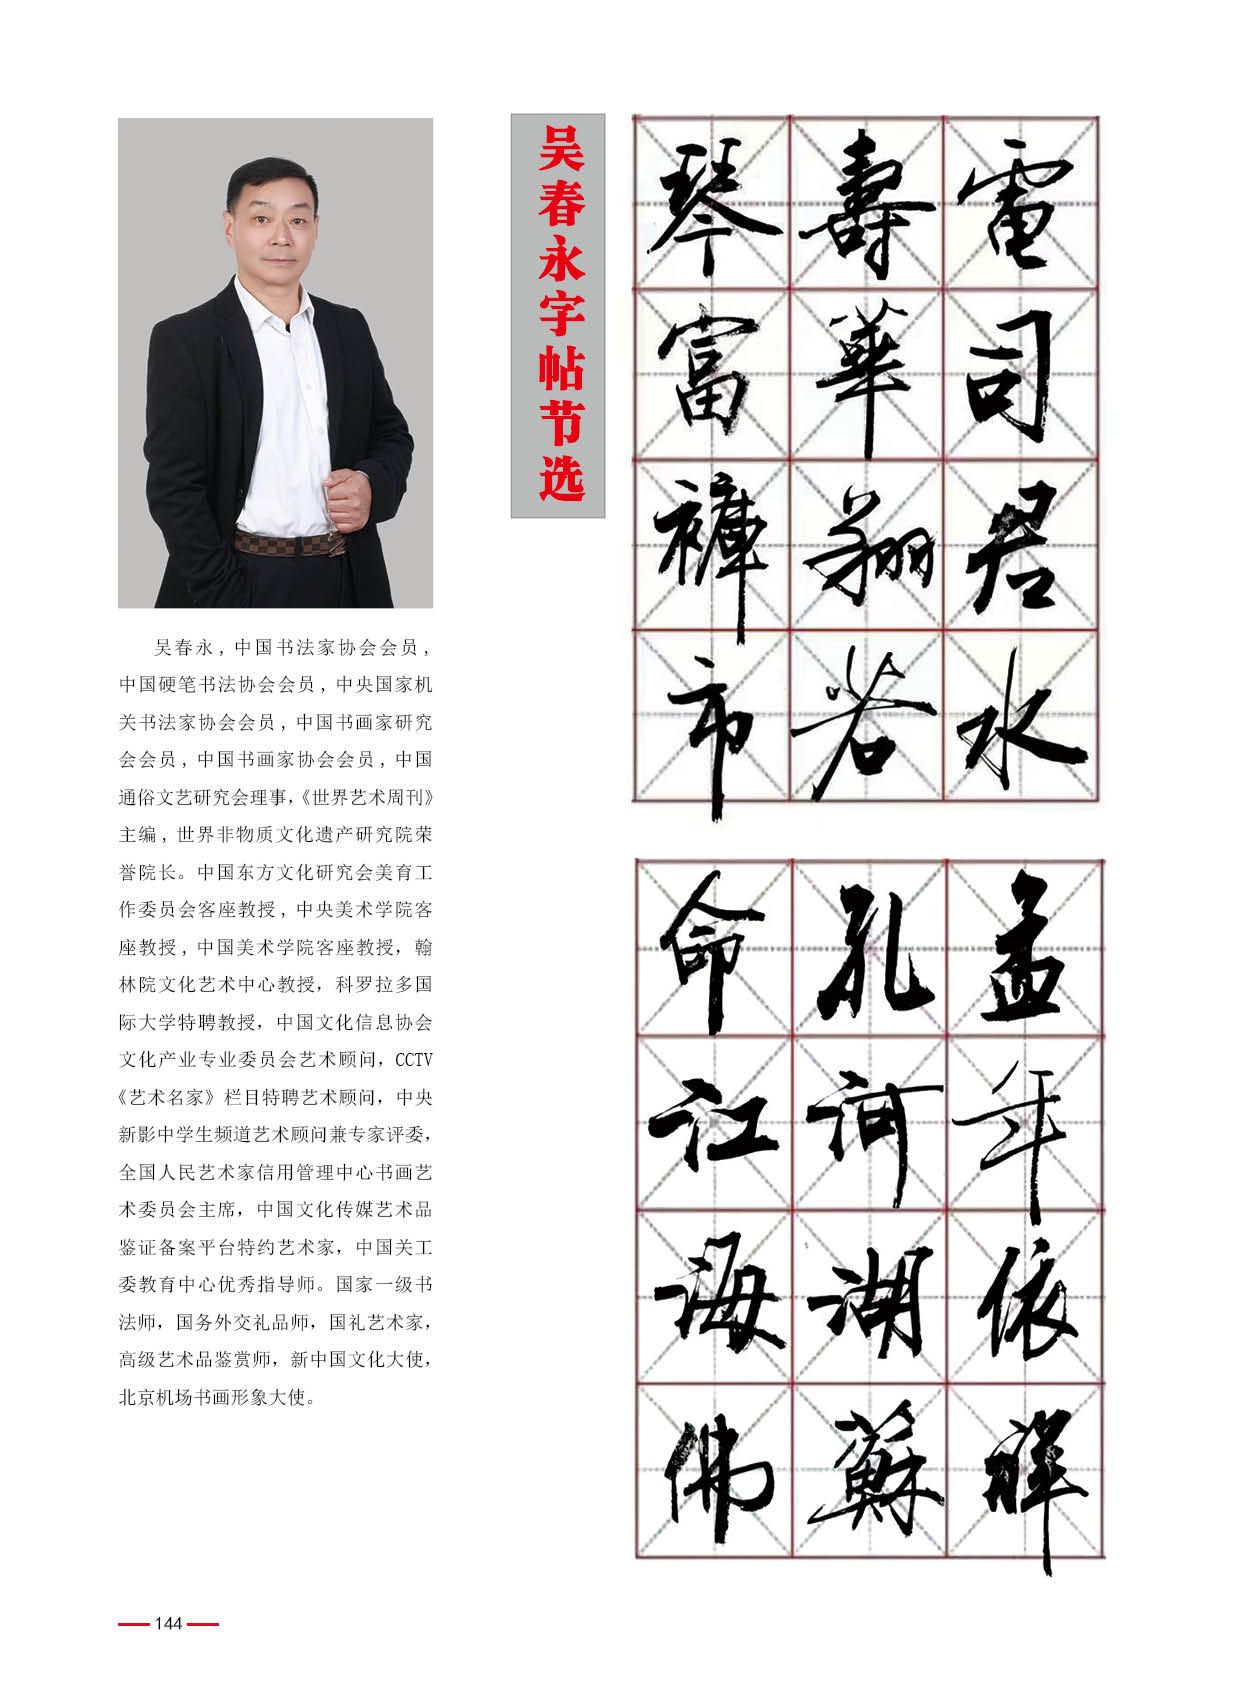 吴春永字帖节选
吴春永，中国书法家协会会员，
中国硬笔书法协会会员，中央国家机
关书法家协会会员，中国书画家研究
会会员，中国书画家协会会员，中国
通俗文艺研究会理事，《世界艺术周刊》
主编，世界非物质文化遗产研究院荣
誉院长。中国东方文化研究会美育工
作委员会客座教授，中央美术学院客
座教授，中国美术学院客座教授，翰
林院文化艺术中心教授，科罗拉多国
际大学特聘教授，中国文化信息协会
文化产业专业委员会艺术顾问，CCTV
《艺术名家》栏目特聘艺术顾问，中央
新影中学生频道艺术顾问兼专家评委，
全国人民艺术家信用管理中心书画艺
术委员会主席，中国文化传媒艺术品
鉴证备案平台特约艺术家，中国关工
委教育中心优秀指导师。国家一级书
法师，国务外交礼品师，国礼艺术家，
高级艺术品鉴赏师，新中国文化大使，
北京机场书画形象大使。
琴壽電
富華司
褲翔君
市若水
命孔孟
江河年
海湖依
佛蘇祥
144